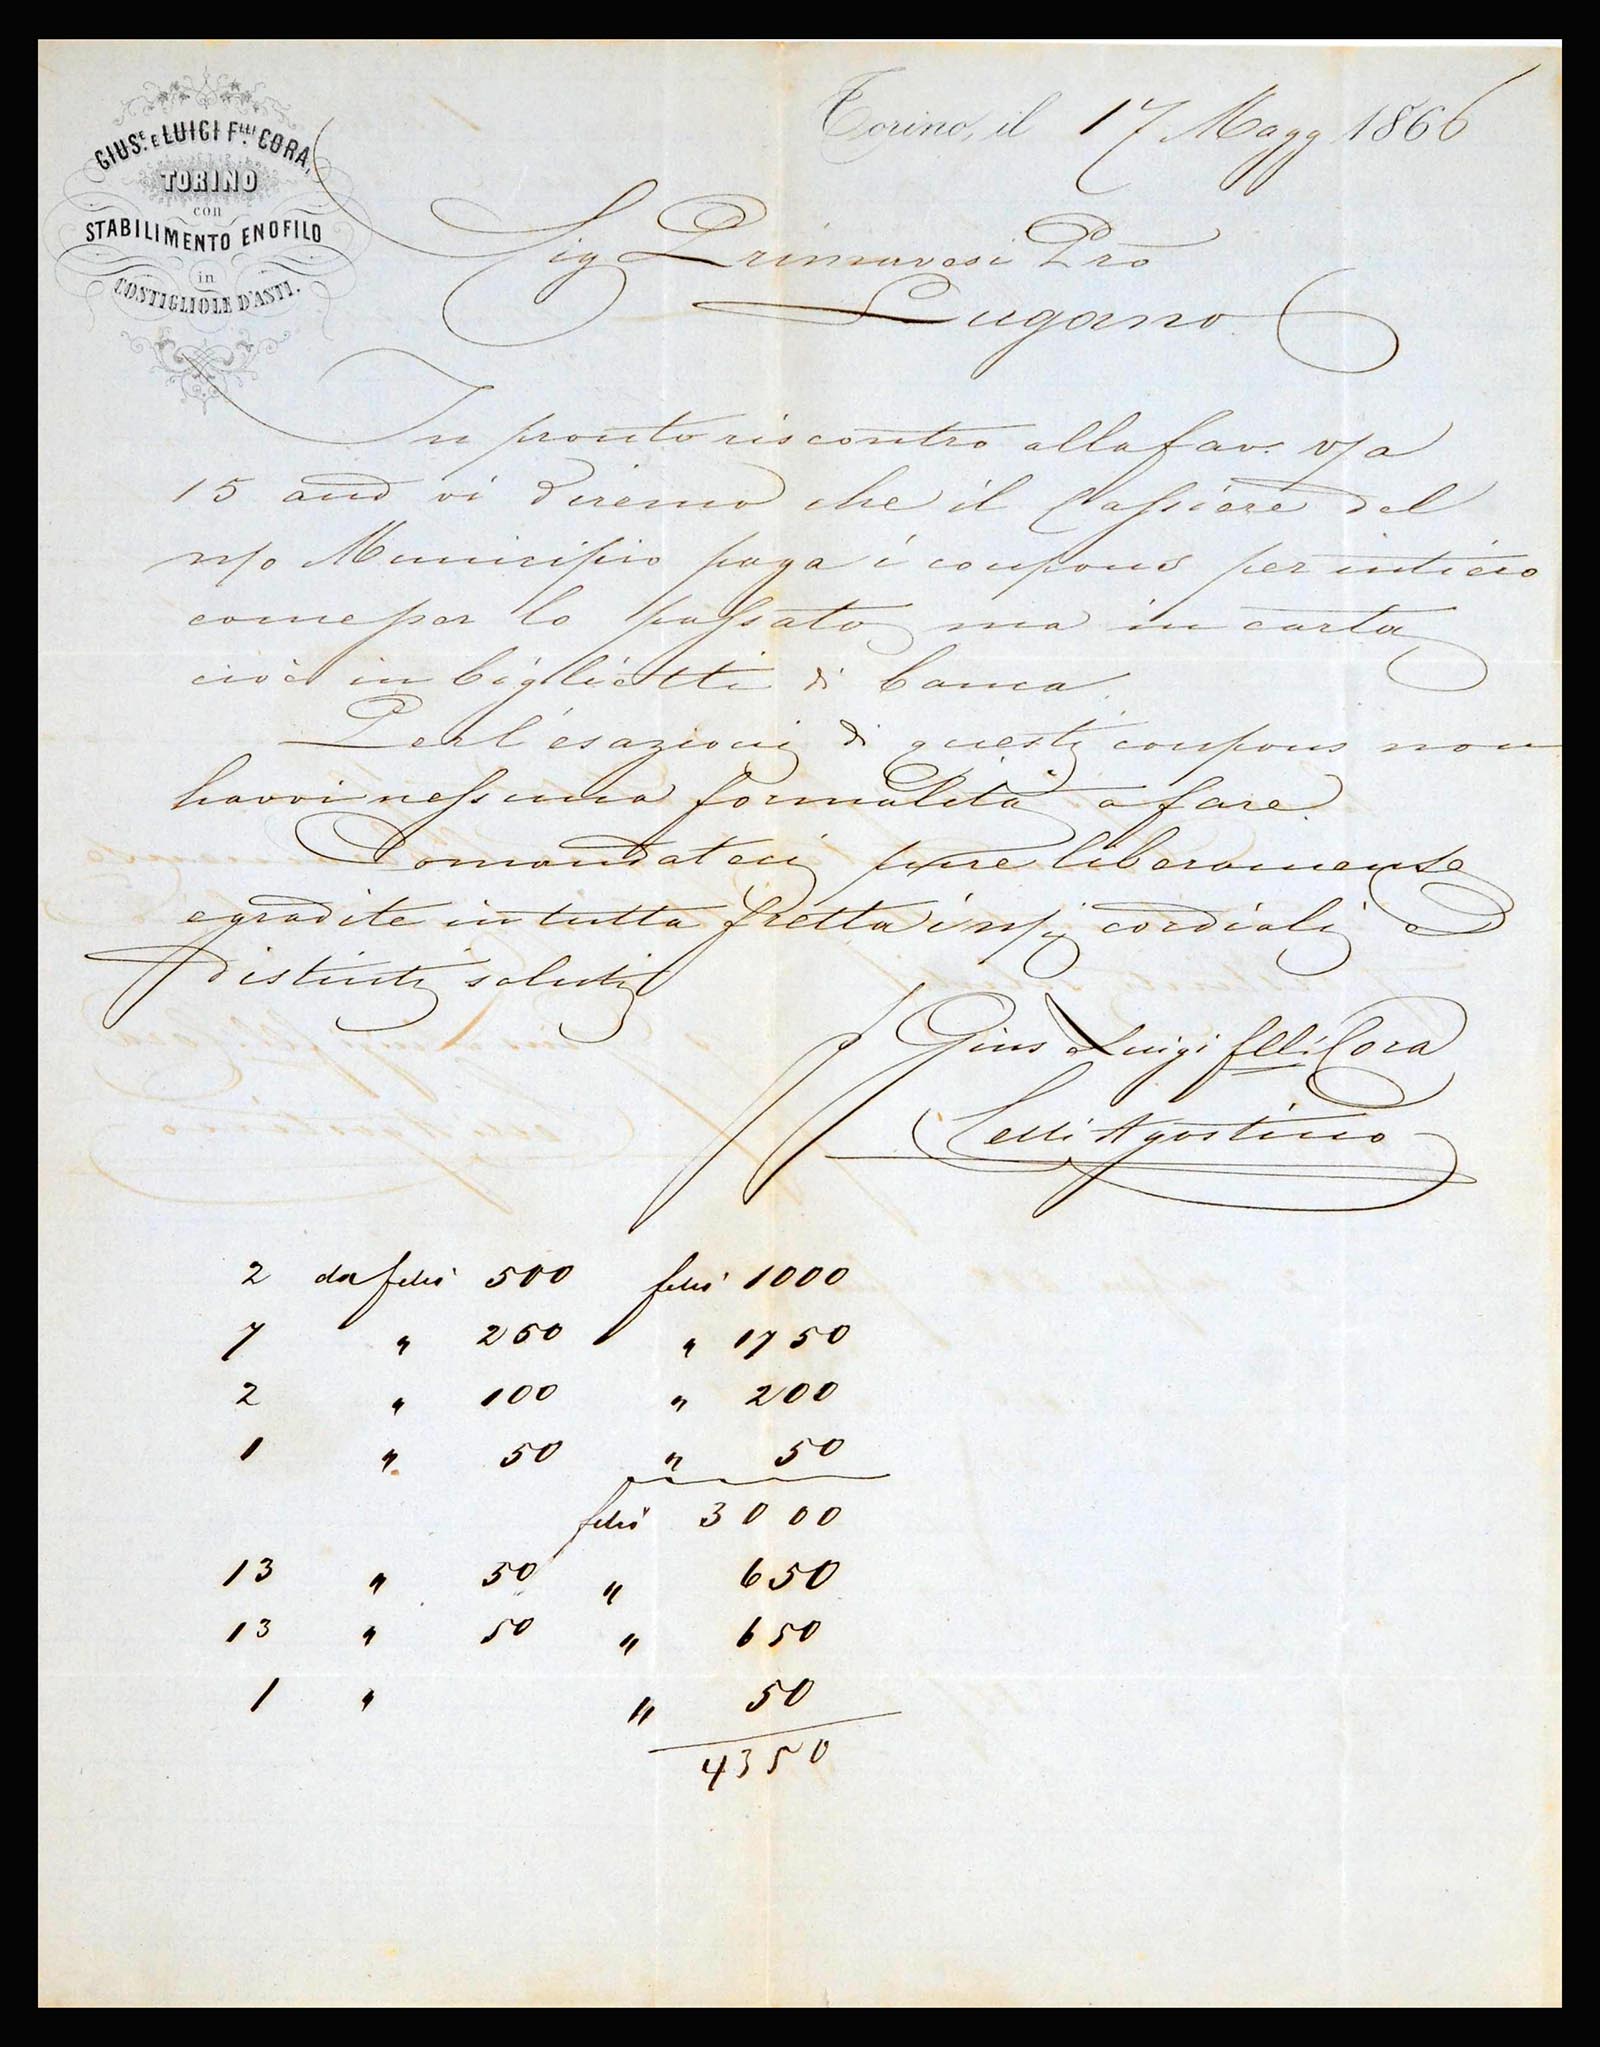 GIUS.E E LUIGI F.LLI CORA,
TORINO
con
STABILIMENTO ENOFILO
in
COSTIGLIOLE D'ASTI.
Torino, il 17 Magg 1866
Sig Primavesi
Lugano
In pronto riscontro alla fav. v/a
15 and vi diremo che il Cassiere del
n/o Municipio paga i coupons per intiero
come per lo passato ma in carta
cioè in biglietti di banca.
Per l'esazione di questi coupons non
havvi nessuna formalità a fare.
Comandateci pure liberamente
e gradite in tutta fretta i n/i cordiali e
distinti saluti
Gius e Luigi flli Cora
Celli Agostino
2 da 500 1000
7 " 250 " 1750
2 " 100 " 200
1 " 50 " 50
3000
13 " 50 " 650
13 " 50 " 650
1 " " 50
4350